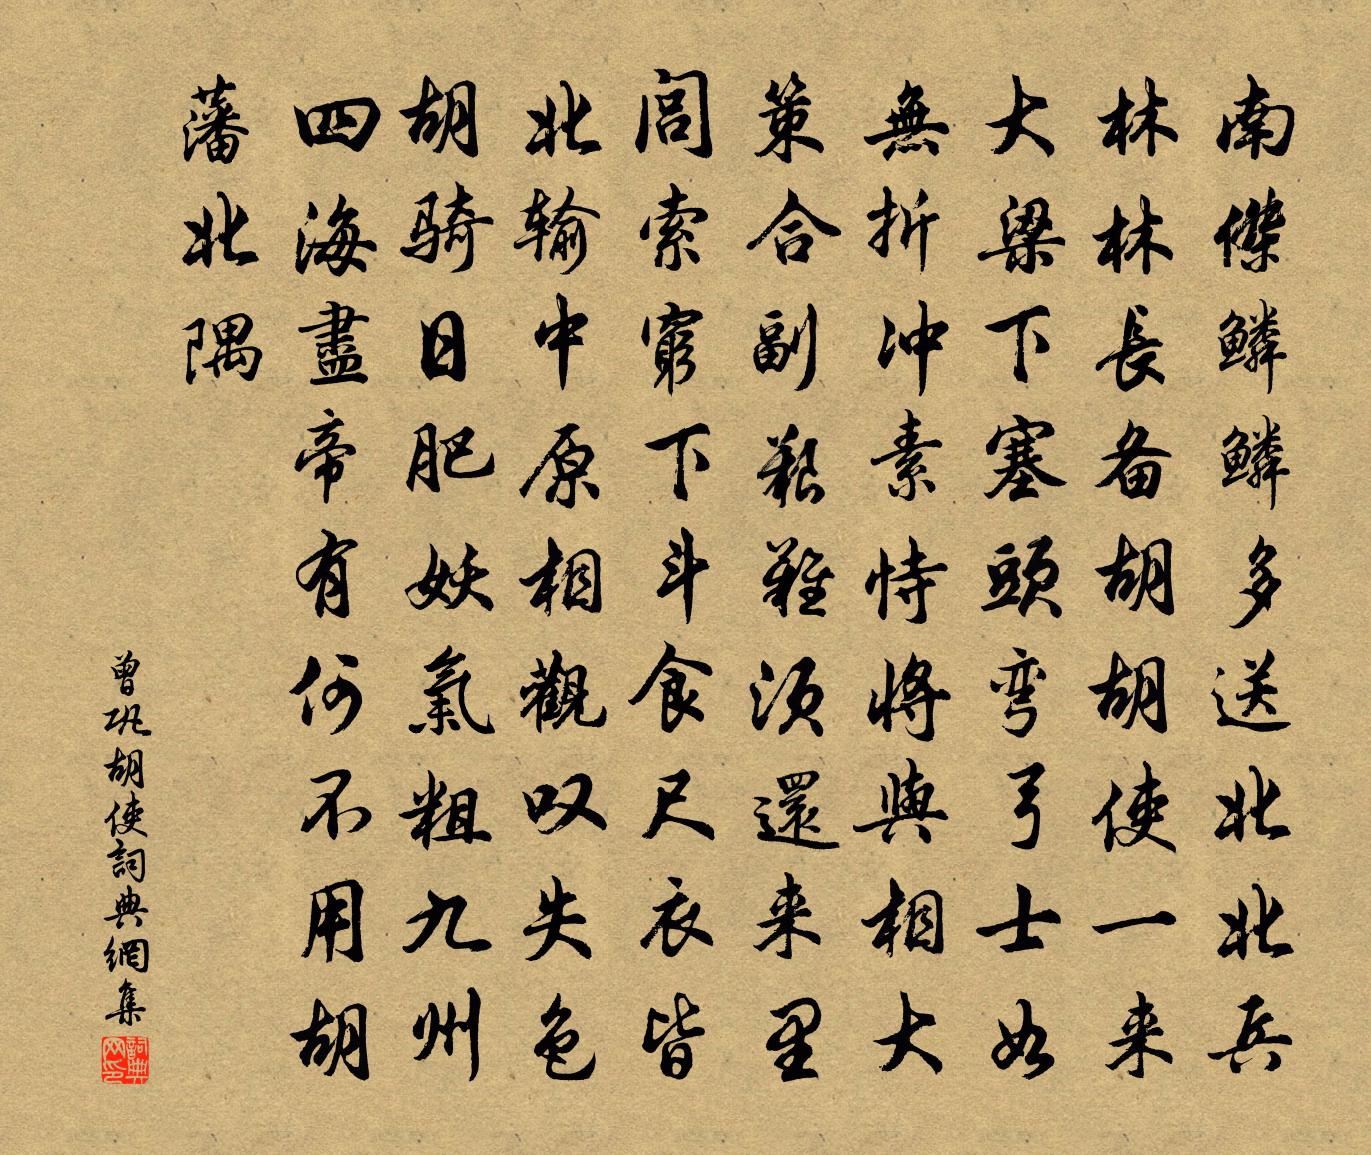 南傑鱗鱗多送北北兵
林林長备胡胡使一来
大梁下塞頭弯弓士如
無折冲素恃將與相大
策合副艱難須還来里
閭索窮下斗食尺衣皆
北输中原相觀叹失色
胡骑日肥妖氣粗九州
四海盡帝有何不用胡
藩北隅
曾巩胡使詞典網集
詞典网印